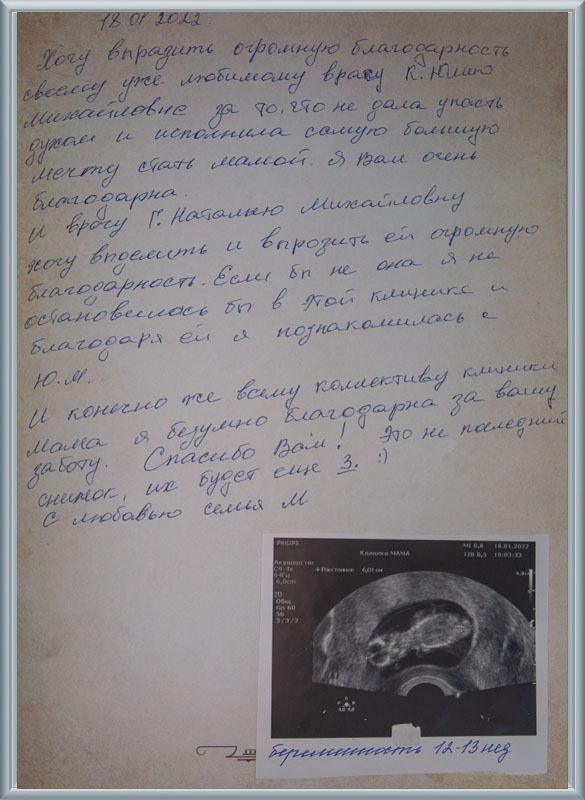 18.01.2022.
Хочу выразить огромную благодарность
своему уже любимому врачу К. Юлию
Михайловне за то, что не дала упасть
духом и исполнила самую большую
мечту стать мамой. Я Вам очень
благодарна.
И врачу Г. Наталью Михайловну
хочу выделить и вырозить ей огромную
благодарность. Если бы не она я не
остановилось бы в этой клинике и
благодаря ей я познакомилась с
Ю.М.
И конечно же всему коллективу клиники
Мама я безумно благодарна за вашу
заботу. Спасибо Вам! Это не последний
снимок, их будет еще 3. :)
С любовью семья М
PHILIPS
MI 0,8 18.01.2022
Клиника МАМА
TIB 0,5 19:03:33
Акушерство
C9-4v
6,0cm
+Расстояние 6,01 см
2D
Общ
Gn 60
56
3/3/2
беременность 12-13 нед